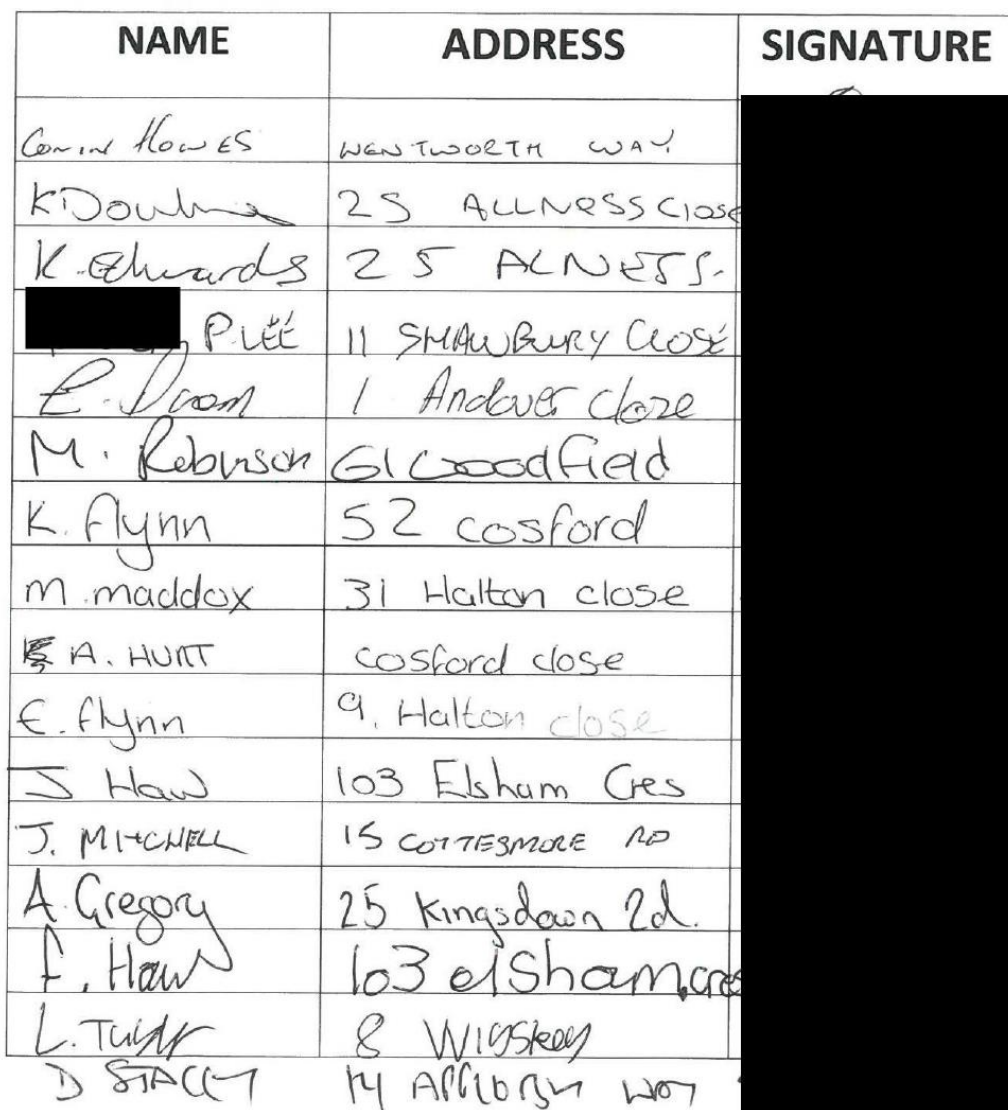 NAME ADDRESS SIGNATURE
HOWES WENTWORTH WAY
K 25 ALLNESS Close
K. Edwards 25 ALNESS.
P. LEE 11 SHAWBURY CLOSE
1 Andover close
M. Robinson 61 Woodfield
K. flynn 52 cosford
M. maddox 31 Halton close
A. HURT cosford close
E. flynn 9. Halton close
J Haw 103 Elsham Cres
J. MITCHELL 15 COTTESMORE RD
A. Gregory 25 Kingsdown Rd.
F. Haw 103 elsham, cres
L. 8
D STACEY 14